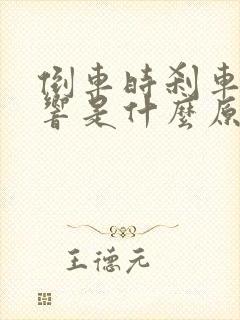 倒車時刹車
響是什麼原
王德元